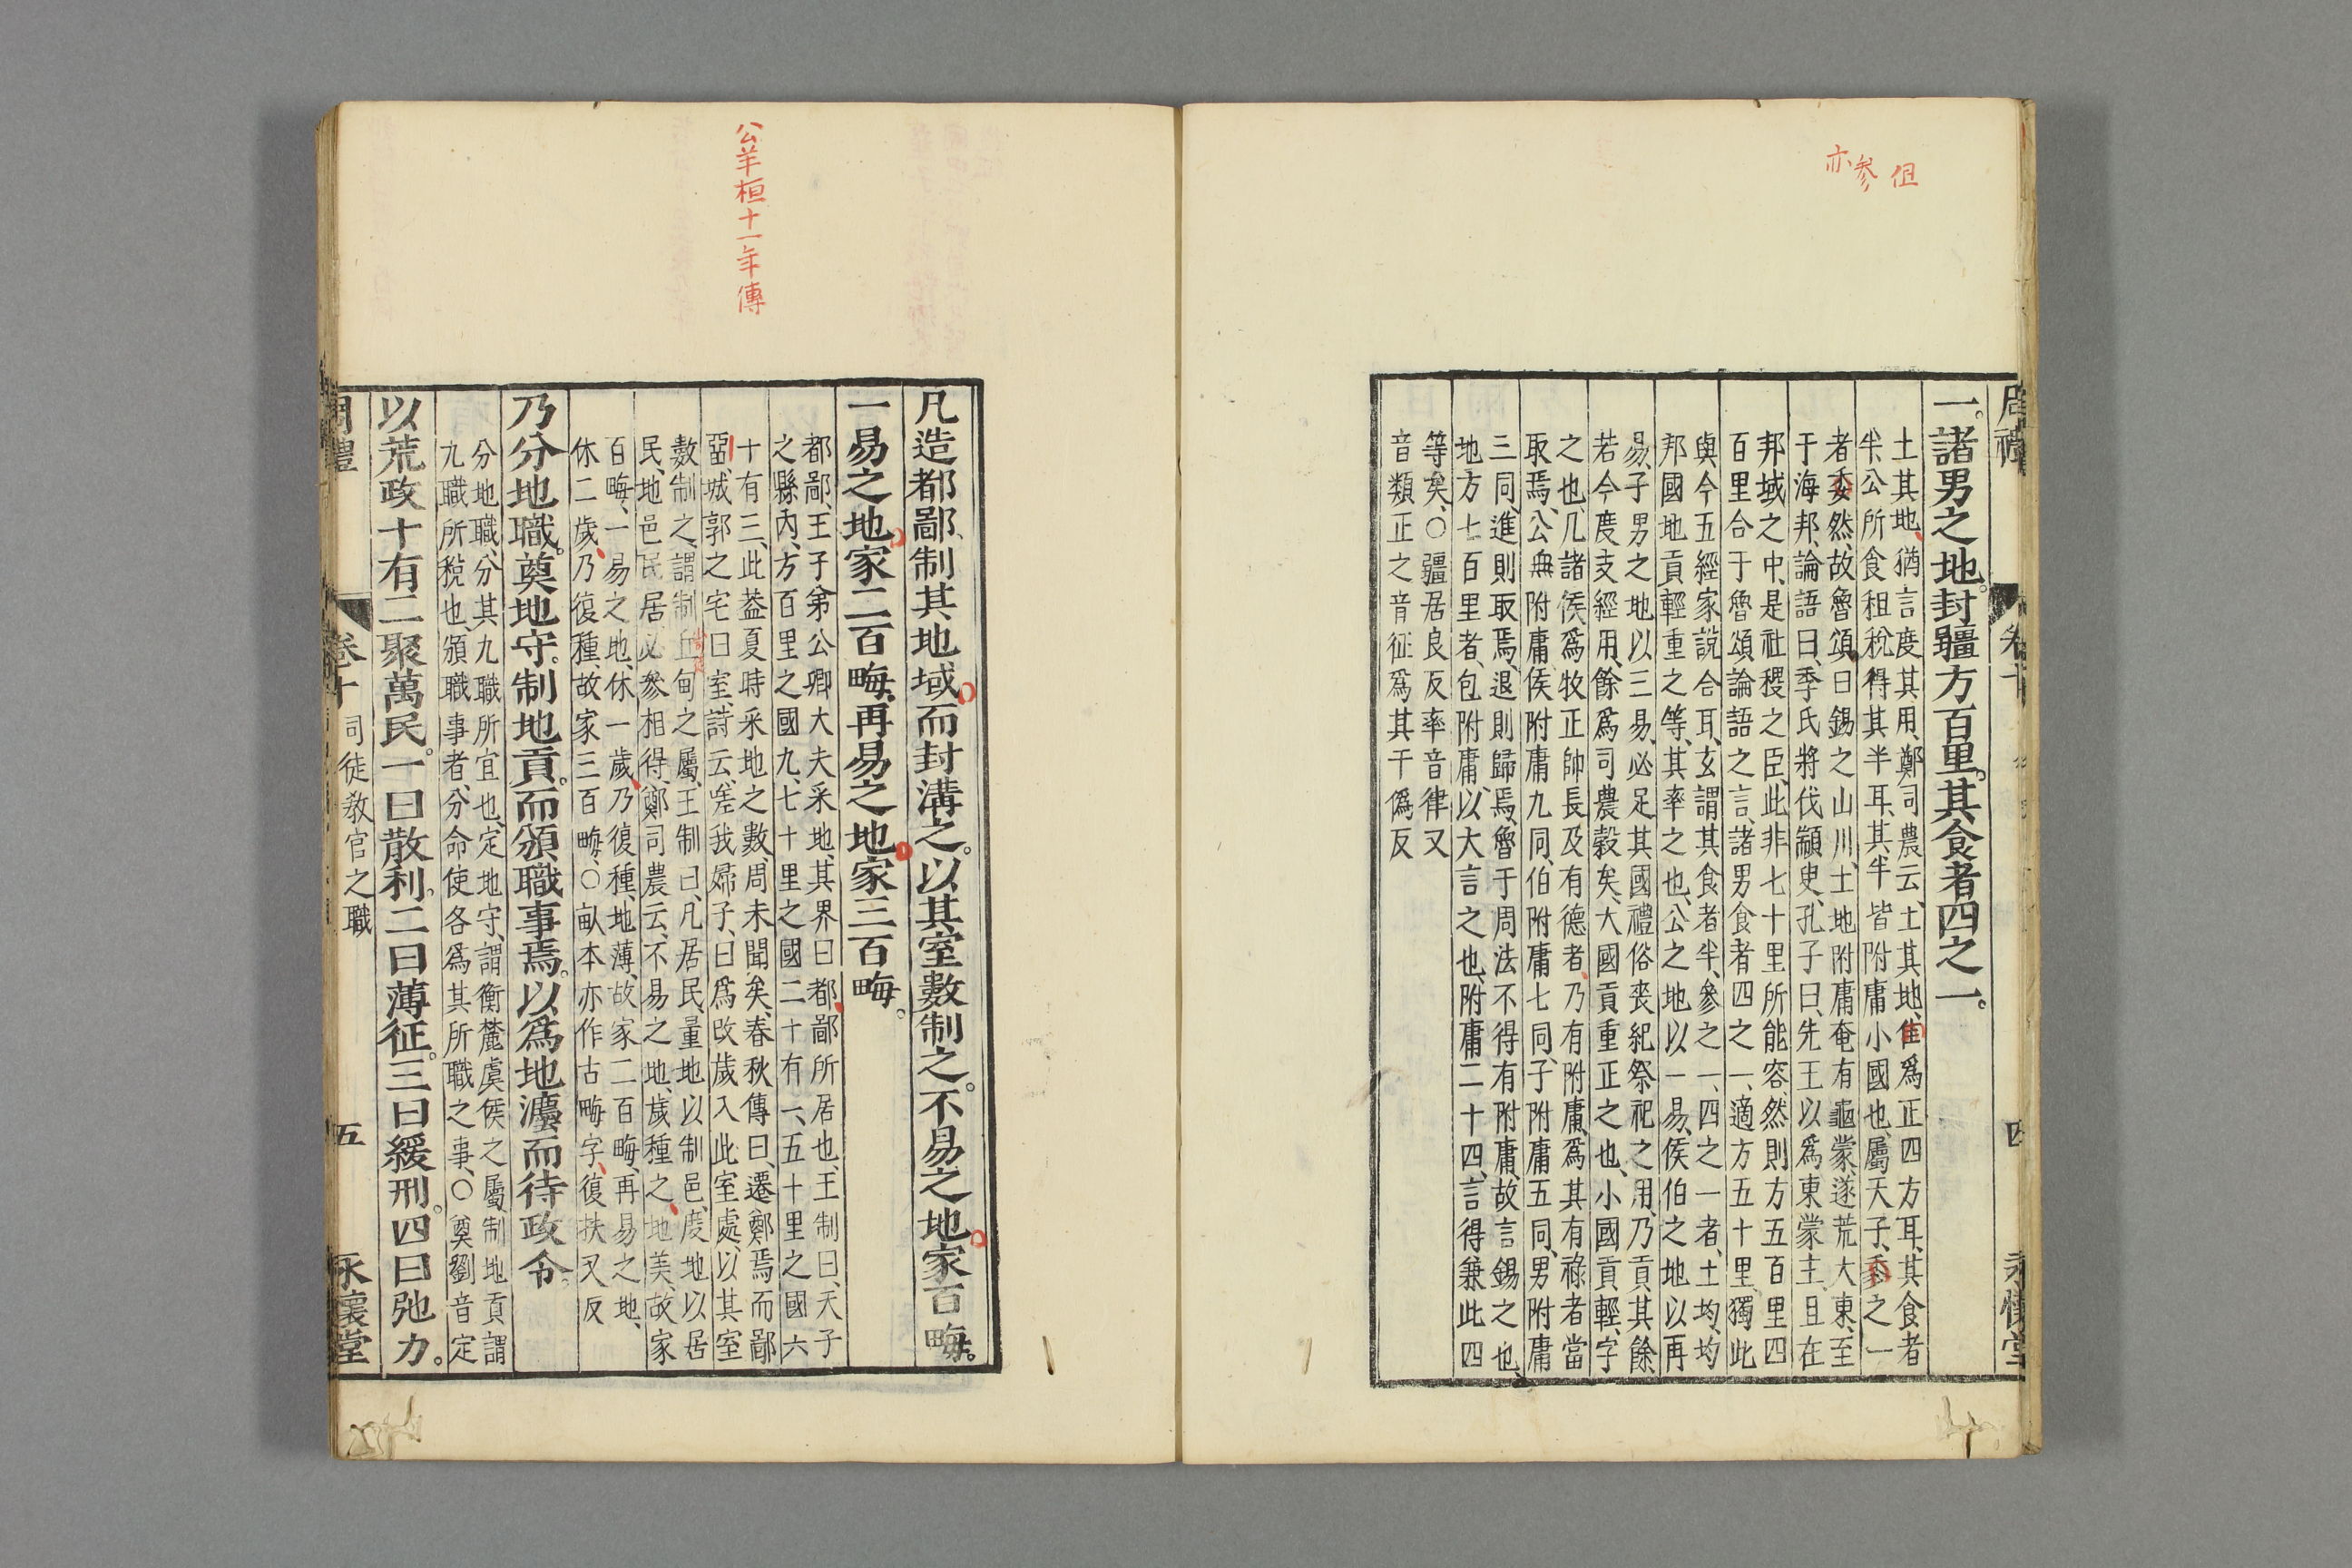 但
參
亦
周禮
卷十
四
永懷堂
一。諸男之地。封疆方百里。其食者四之一。
土其地、猶言度其用、鄭司農云、土其地、但爲正四方耳、其食者
半、公所食租稅得其半耳、其半皆附庸小國也、屬天子、參之一
者委然、故魯頌曰錫之山川、土地附庸奄有龜蒙、遂荒大東、至
于海邦、論語曰、季氏將伐顓臾、孔子曰、先王以爲東蒙主、且在
邦域之中、是社稷之臣、此非七十里所能容、然則方五百里四
百里合于魯頌論語之言、諸男食者四之一、適方五十里、獨此
與今五經家說合耳、玄謂其食者半、參之一、四之一者、土均、均
邦國地貢輕重之等、其率之也、公之地以一易、侯伯之地以再
易、子男之地以三易、必足其國禮俗喪紀祭祀之用、乃貢其餘
若今度支經用、餘爲司農穀矣、大國貢重正之也、小國貢輕、字
之也、凡諸侯爲牧正帥長及有德者、乃有附庸、爲其有祿者當
取焉、公無附庸、侯附庸九同、伯附庸七同、子附庸五同、男附庸
三同、進則取焉、退則歸焉、魯于周法不得有附庸、故言錫之也、
地方七百里者、包附庸、以大言之也、附庸二十四、言得兼此四
等矣、○疆居良反率音律又
音類正之音征爲其于僞反
公羊桓十一年傳
凡造都鄙、制其地域、而封溝之。以其室數制之。不易之地、家百畮。
一易之地、家二百畮、再易之地、家三百畮。
都鄙、王子弟公卿大夫采地、其界曰都、鄙所居也、王制曰、天子
之縣內、方百里之國九、七十里之國二十有一、五十里之國六
十有三、此蓋夏時采地之數、周未聞矣、春秋傳曰、遷鄭焉而鄙
畱、城郭之宅曰室、詩云、嗟我婦子、曰爲改歲入此室處、以其室
數制之、謂制丘甸之屬、王制曰、凡居民、量地以制邑、度地以居
民、地邑民居必參相得、鄭司農云、不易之地、歲種之、地美、故家
百畮、一易之地、休一歲、乃復種、地薄、故家二百畮、再易之地、
休二歲、乃復種、故家三百畮、○畝本亦作古畮字、復扶又反
乃分地職。奠地守。制地貢。而頒職事焉。以爲地灋而待政令。
分地職、分其九職所宜也、定地守、謂衡麓虞侯之屬、制地貢謂
九職所稅也、頒職事者、分命使各爲其所職之事、○奠劉音定
以荒政十有二聚萬民。一曰散利。二曰薄征。三曰緩刑。四曰弛力。
周禮
卷十
司徒敎官之職
五
永懷堂